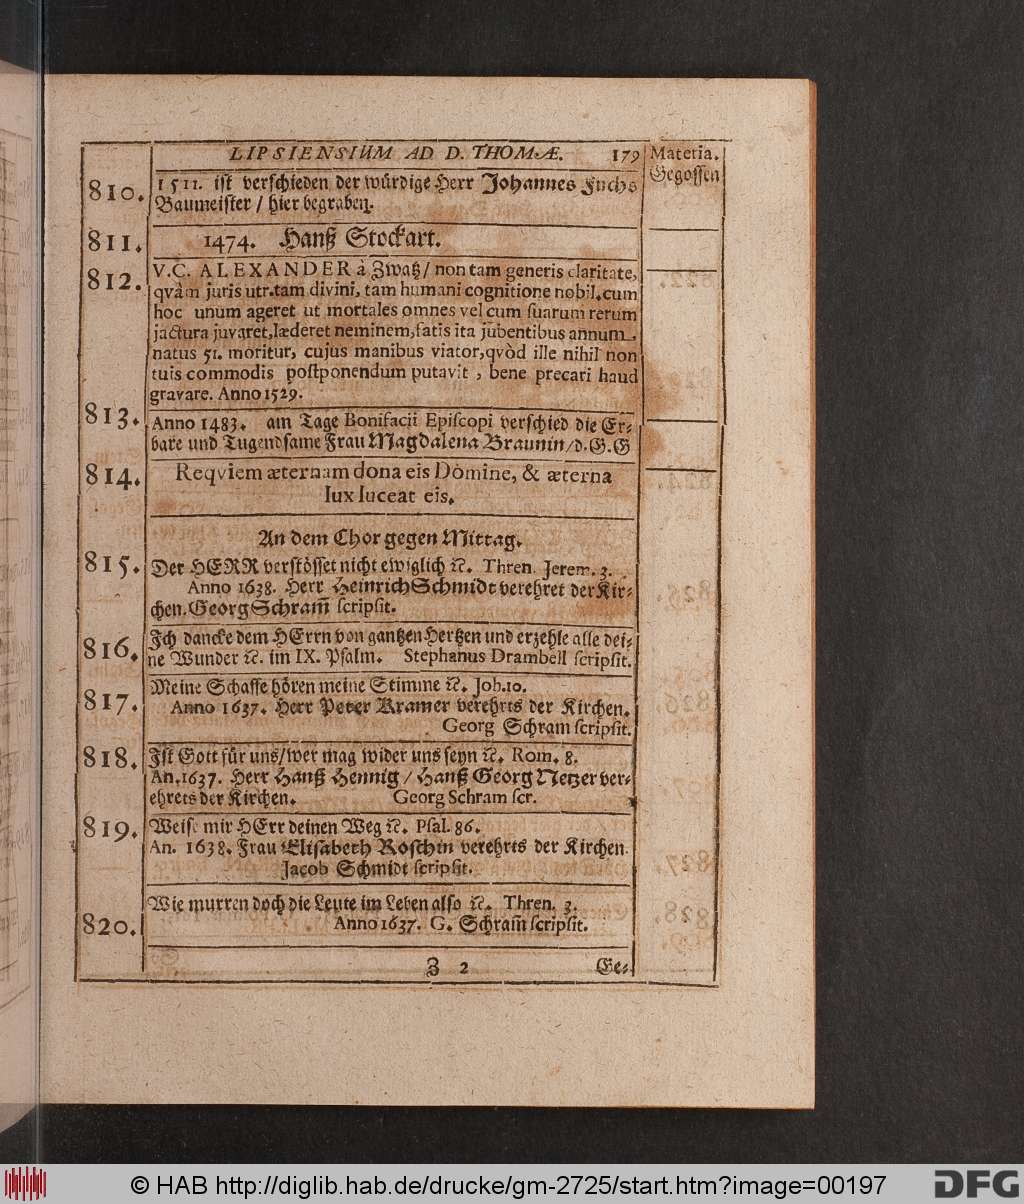 LIPSIENSIUM AD D. THOMÆ. 179 Materia.
810. 1511. ist verschieden der würdige Herr Johannes Fuchs Gegossen
Baumeister / hier begraben.
811. 1474. Hanß Stockart.
812. V.C. ALEXANDER à Zwatz / non tam generis claritate,
qvàm juris utr. tam divini, tam humani cognitione nobil. cum
hoc unum ageret ut mortales omnes vel cum suarum rerum
jactura juvaret, læderet neminem, satis ita jubentibus annum
natus 51. moritur, cujus manibus viator, qvòd ille nihil non
tuis commodis postponendum putavit, bene precari haud
gravare. Anno 1529.
813. Anno 1483. am Tage Bonifacii Episcopi verschied die Er-
bare und Tugendsame Frau Magdalena Braunin / d. G. G
814. Reqviem æternam dona eis Domine, & æterna
lux luceat eis.
An dem Chor gegen Mittag.
815. Der HERR verstösset nicht ewiglich ꝛc. Thren. Jerem. 3.
Anno 1638. Herr Heinrich Schmidt verehret der Kir-
chen. Georg Schram̃ scripsit.
816. Ich dancke dem HErrn von gantzen Hertzen und erzehle alle dei-
ne Wunder ꝛc. im IX. Psalm. Stephanus Drambell scripsit.
817. Meine Schaffe hören meine Stimme ꝛc. Joh. 10.
Anno 1637. Herr Peter Kramer verehrts der Kirchen.
Georg Schram scripsit.
818. Ist Gott für uns / wer mag wider uns seyn ꝛc. Rom. 8.
An. 1637. Herr Hanß Hennig / Hanß Georg Netzer ver-
ehrets der Kirchen. Georg Schram scr.
819. Weise mir HErr deinen Weg ꝛc. Psal. 86.
An. 1638. Frau Elisabeth Roschin verehrts der Kirchen.
Jacob Schmidt scripsit.
820. Wie murren doch die Leute im Leben also ꝛc. Thren. 3.
Anno 1637. G. Schram̃ scripsit.
Z 2 Ge-
© HAB http://diglib.hab.de/drucke/gm-2725/start.htm?image=00197
DFG